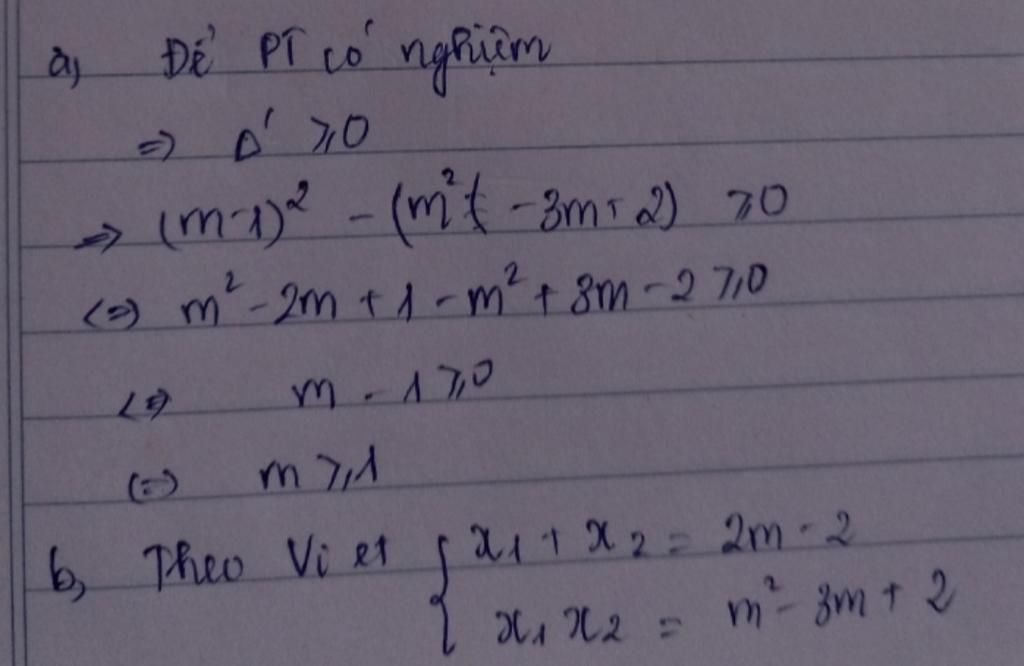 a, Để PT có nghiệm
=> Δ' ≥ 0
=> (m-1)² - (m² - 3m + 2) ≥ 0
<=> m² - 2m + 1 - m² + 3m - 2 ≥ 0
<=> m - 1 ≥ 0
<=> m ≥ 1
b, Theo Vi et { x₁ + x₂ = 2m - 2
x₁ x₂ = m² - 3m + 2